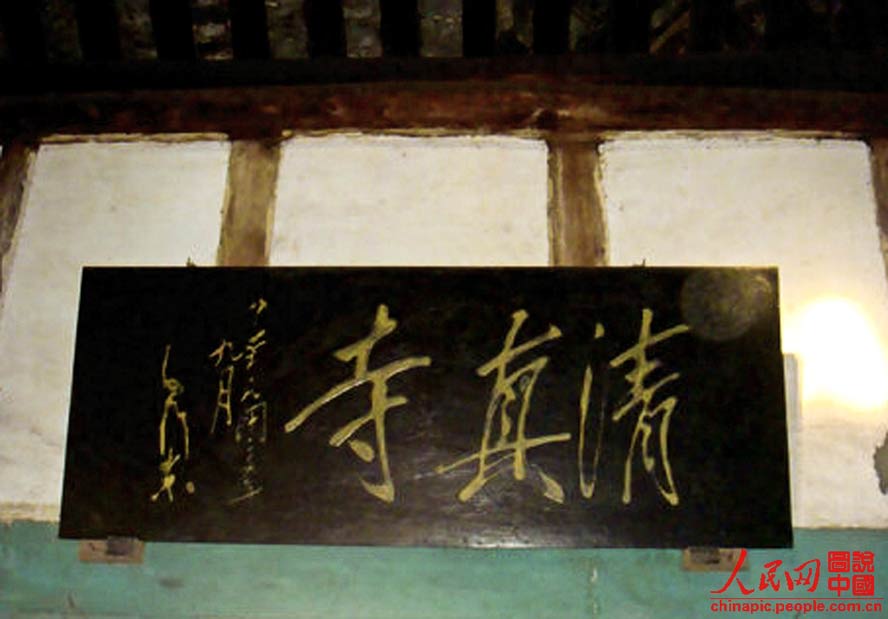 清真寺
九月
毛澤東
人民网
圖說
中國
chinapic.people.com.cn